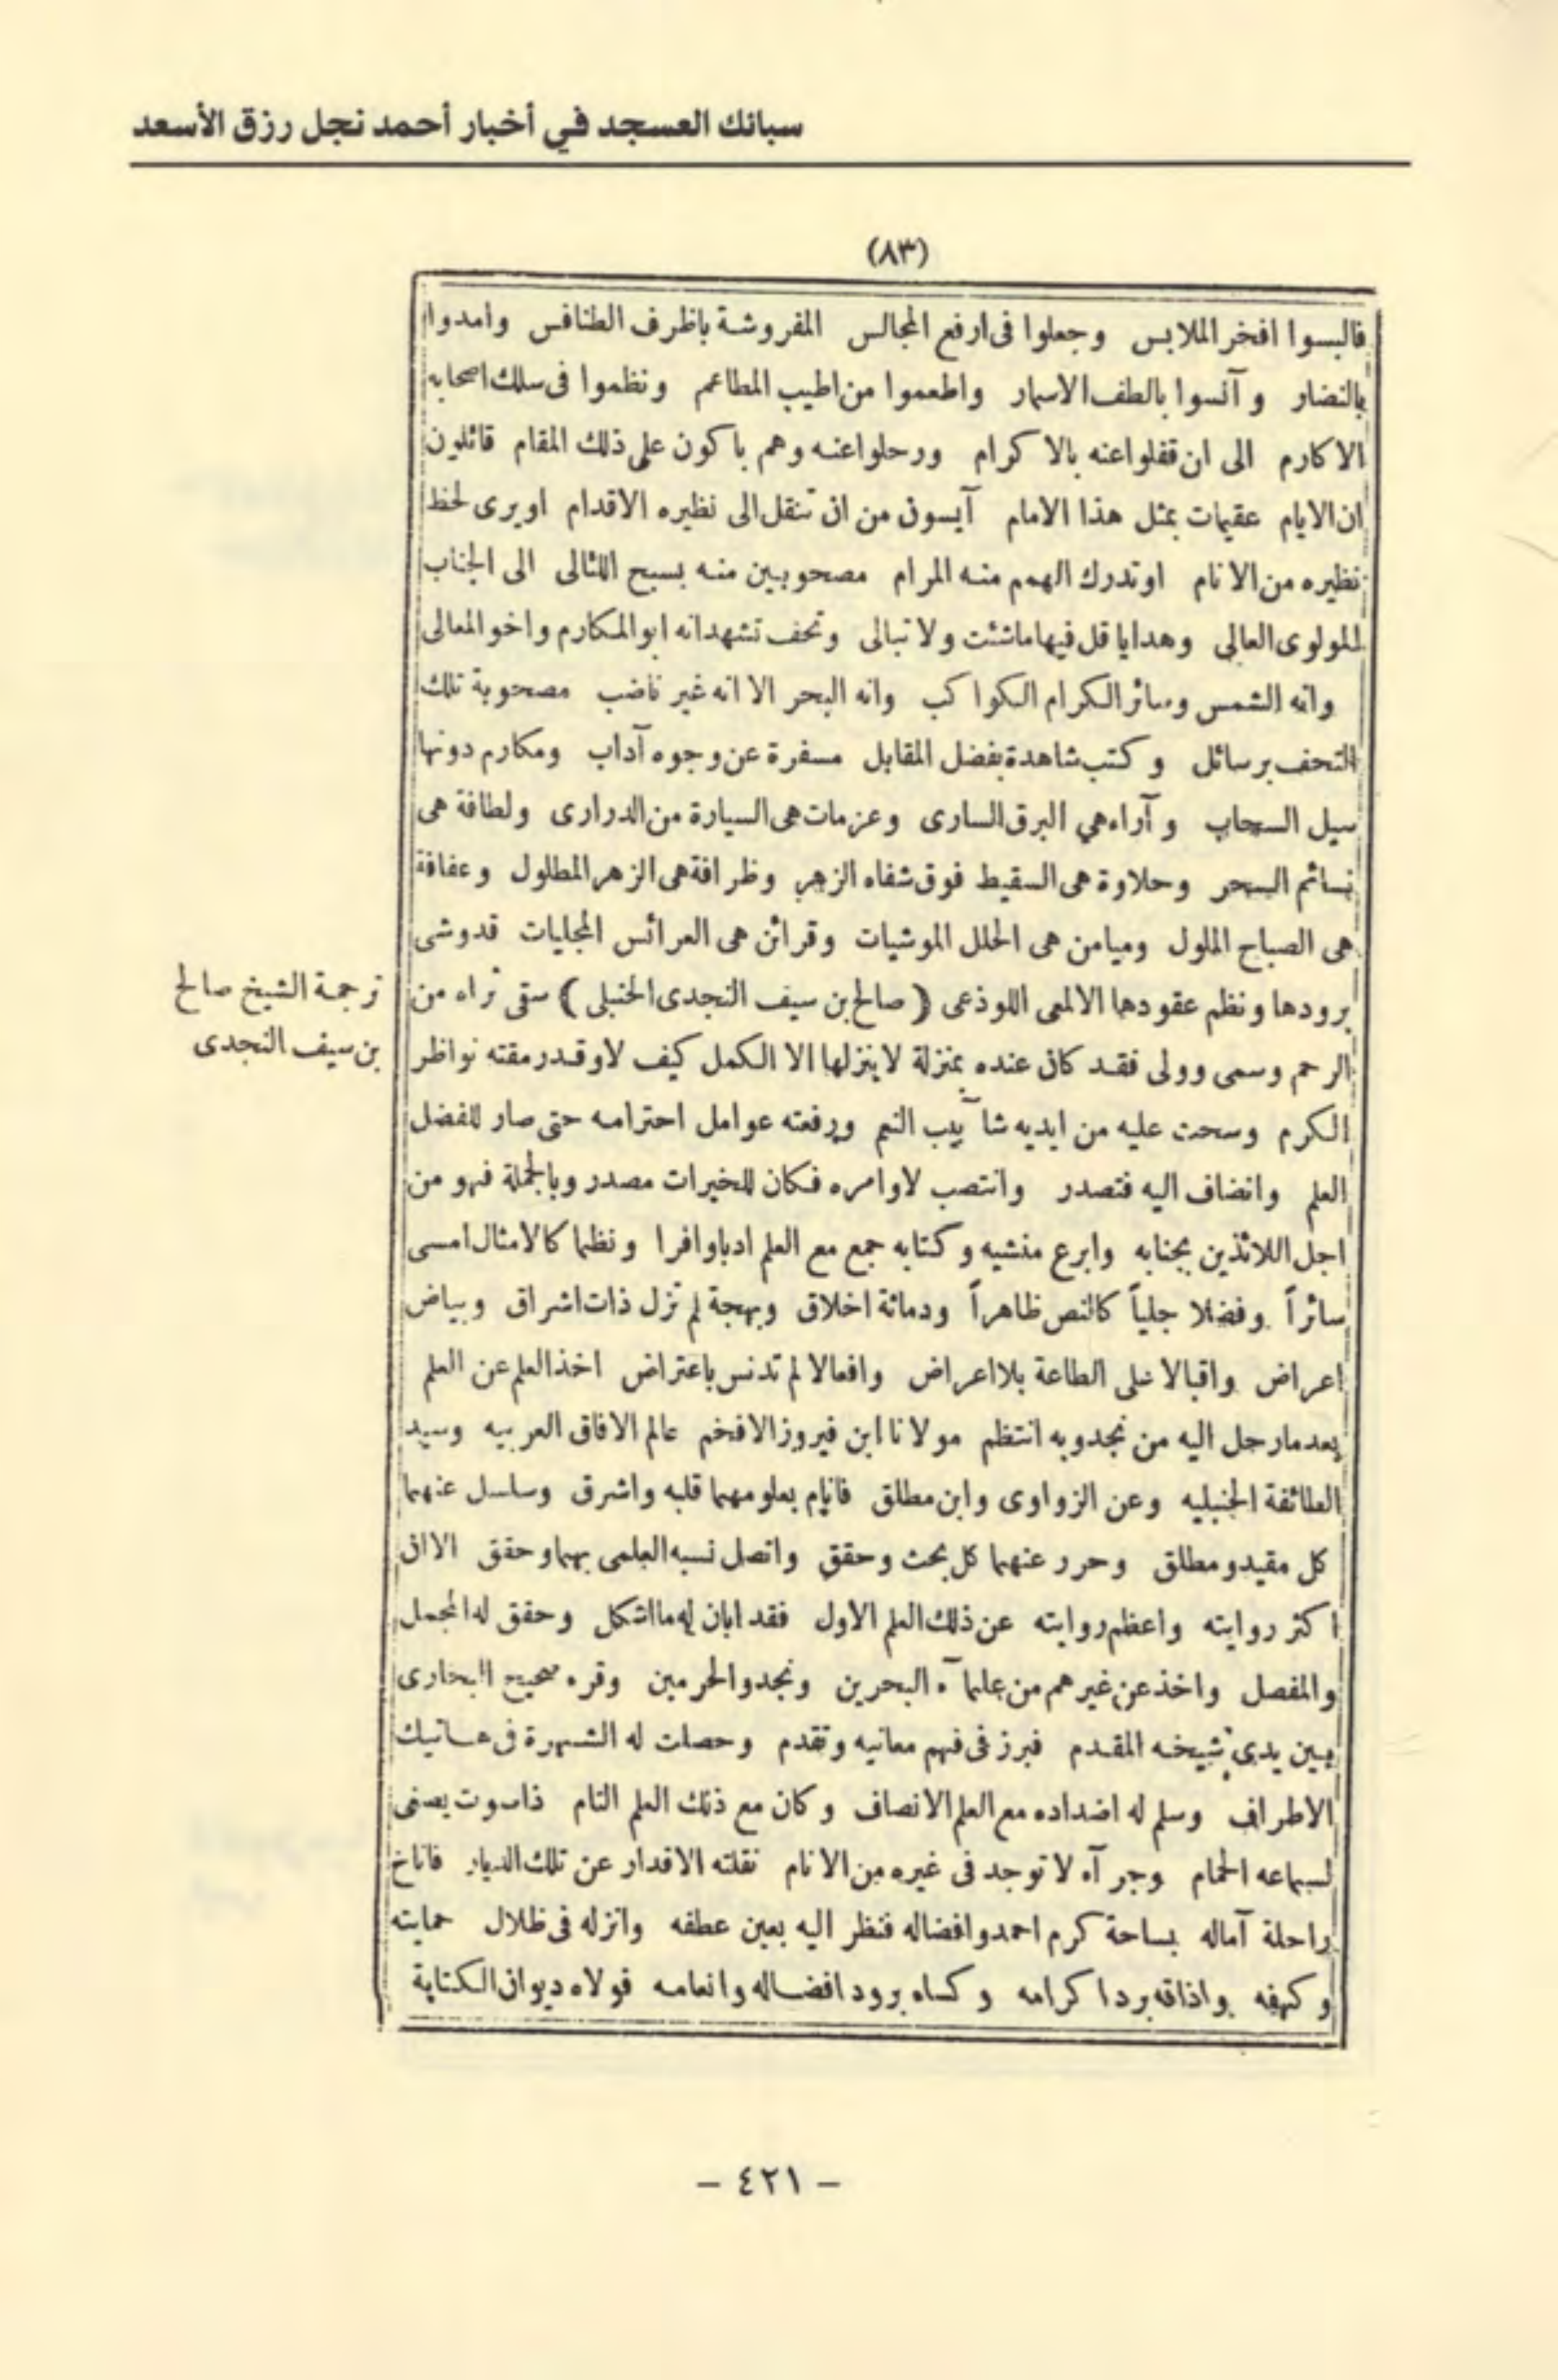 سبائك العسجد في أخبار أحمد نجل رزق الأسعد
(٨٣)
فالبسوا افخر الملابس وجعلوا فى ارفع المجالس المفروشة باظرف الطنافس وامدوا
بالنضار وآنسوا بالطف الاسمار واطعموا من اطيب المطاعم ونظموا فى سلك اصحابه
الاكارم الى ان قفلوا عنه بالاكرام ورحلوا عنه وهم باكون على ذلك المقام قائلون
ان الايام عقيمات بمثل هذا الامام آيسون من ان تنقل الى نظيره الاقدام او يرى لحظ
نظيره من الانام او تدرك الهمم منه المرام مصحوبين منه بسبح اللئالى الى الجناب
المولوى العالى وهدايا قل فيها ماشئت ولا تبالى وتحف تشهد انه ابو المكارم واخو المعالى
وانه الشمس وسائر الكرام الكواكب وانه البحر الا انه غير ناضب مصحوبة تلك
التحف برسائل وكتب شاهدة بفضل المقابل مسفرة عن وجوه آداب ومكارم دونها
سيل السحاب وآراء هي البرق السارى وعزمات هى السيارة من الدرارى ولطافة هى
نسائم السحر وحلاوة هى السقيط فوق شفاه الزهر وظرافة هى الزهر المطلول وعفافة
هى الصباح الملول وميامن هى الحلل الموشيات وقرائن هى العرائس المجليات قدوشى
برودها ونظم عقودها الالمعى اللوذعى ( صالح بن سيف النجدى الحنبلى ) سقى ثراه من
ترجمة الشيخ صالح
بن سيف النجدى
الرحم وسمى وولى فقد كان عنده بمنزلة لا ينزلها الا الكمل كيف لا وقد رمقته نواظر
الكرم وسحت عليه من ايديه شآبيب النعم ورفعته عوامل احترامه حتى صار للفضل
العلم وانضاف اليه فتصدر وانتصب لاوامره فكان للخيرات مصدر وبالجملة فهو من
اجل اللائذين بجنابه وابرع منشيه وكتابه جمع مع العلم ادبا وافرا ونظما كالامثال امسى
سائراً وفضلا جلياً كالنص ظاهراً ودماثة اخلاق وبهجة لم تزل ذات اشراق وبياض
اعراض واقبالا على الطاعة بلا اعراض وافعالا لم تدنس باعتراض اخذ العلم عن العلم
بعد مارحل اليه من نجد وبه انتظم مولانا ابن فيروز الافخم عالم الافاق العربيه وسيد
الطائفة الحنبليه وعن الزواوى وابن مطلق فانام بعلومهما قلبه واشرق وسلسل عنهما
كل مقيد ومطلق وحرر عنهما كل بحث وحقق واتصل نسبه العلمى بهما وحقق الا ان
اكثر روايته واعظم روايته عن ذلك العلم الاول فقد ابان له ما اشكل وحقق له المجمل
والمفصل واخذ عن غيرهم من علمآء البحرين ونجد والحرمين وقرء صحيح البخارى
بين يدى شيخه المقدم فبرز فى فهم معانيه وتقدم وحصلت له الشهرة فى هاتيك
الاطراف وسلم له اضداده مع العلم الانصاف وكان مع ذلك العلم التام ذا صوت يصغى
لسماعه الحمام وجرآه لا توجد فى غيره من الانام نقلته الاقدار عن تلك الديار فاناخ
راحلة آماله بساحة كرم احمد وافضاله فنظر اليه بعين عطفه وانزله فى ظلال حمايته
وكهفه واذاقه برد اكرامه وكساه برود افضاله وانعامه فولاه ديوان الكتابة
– ٤٢١ –